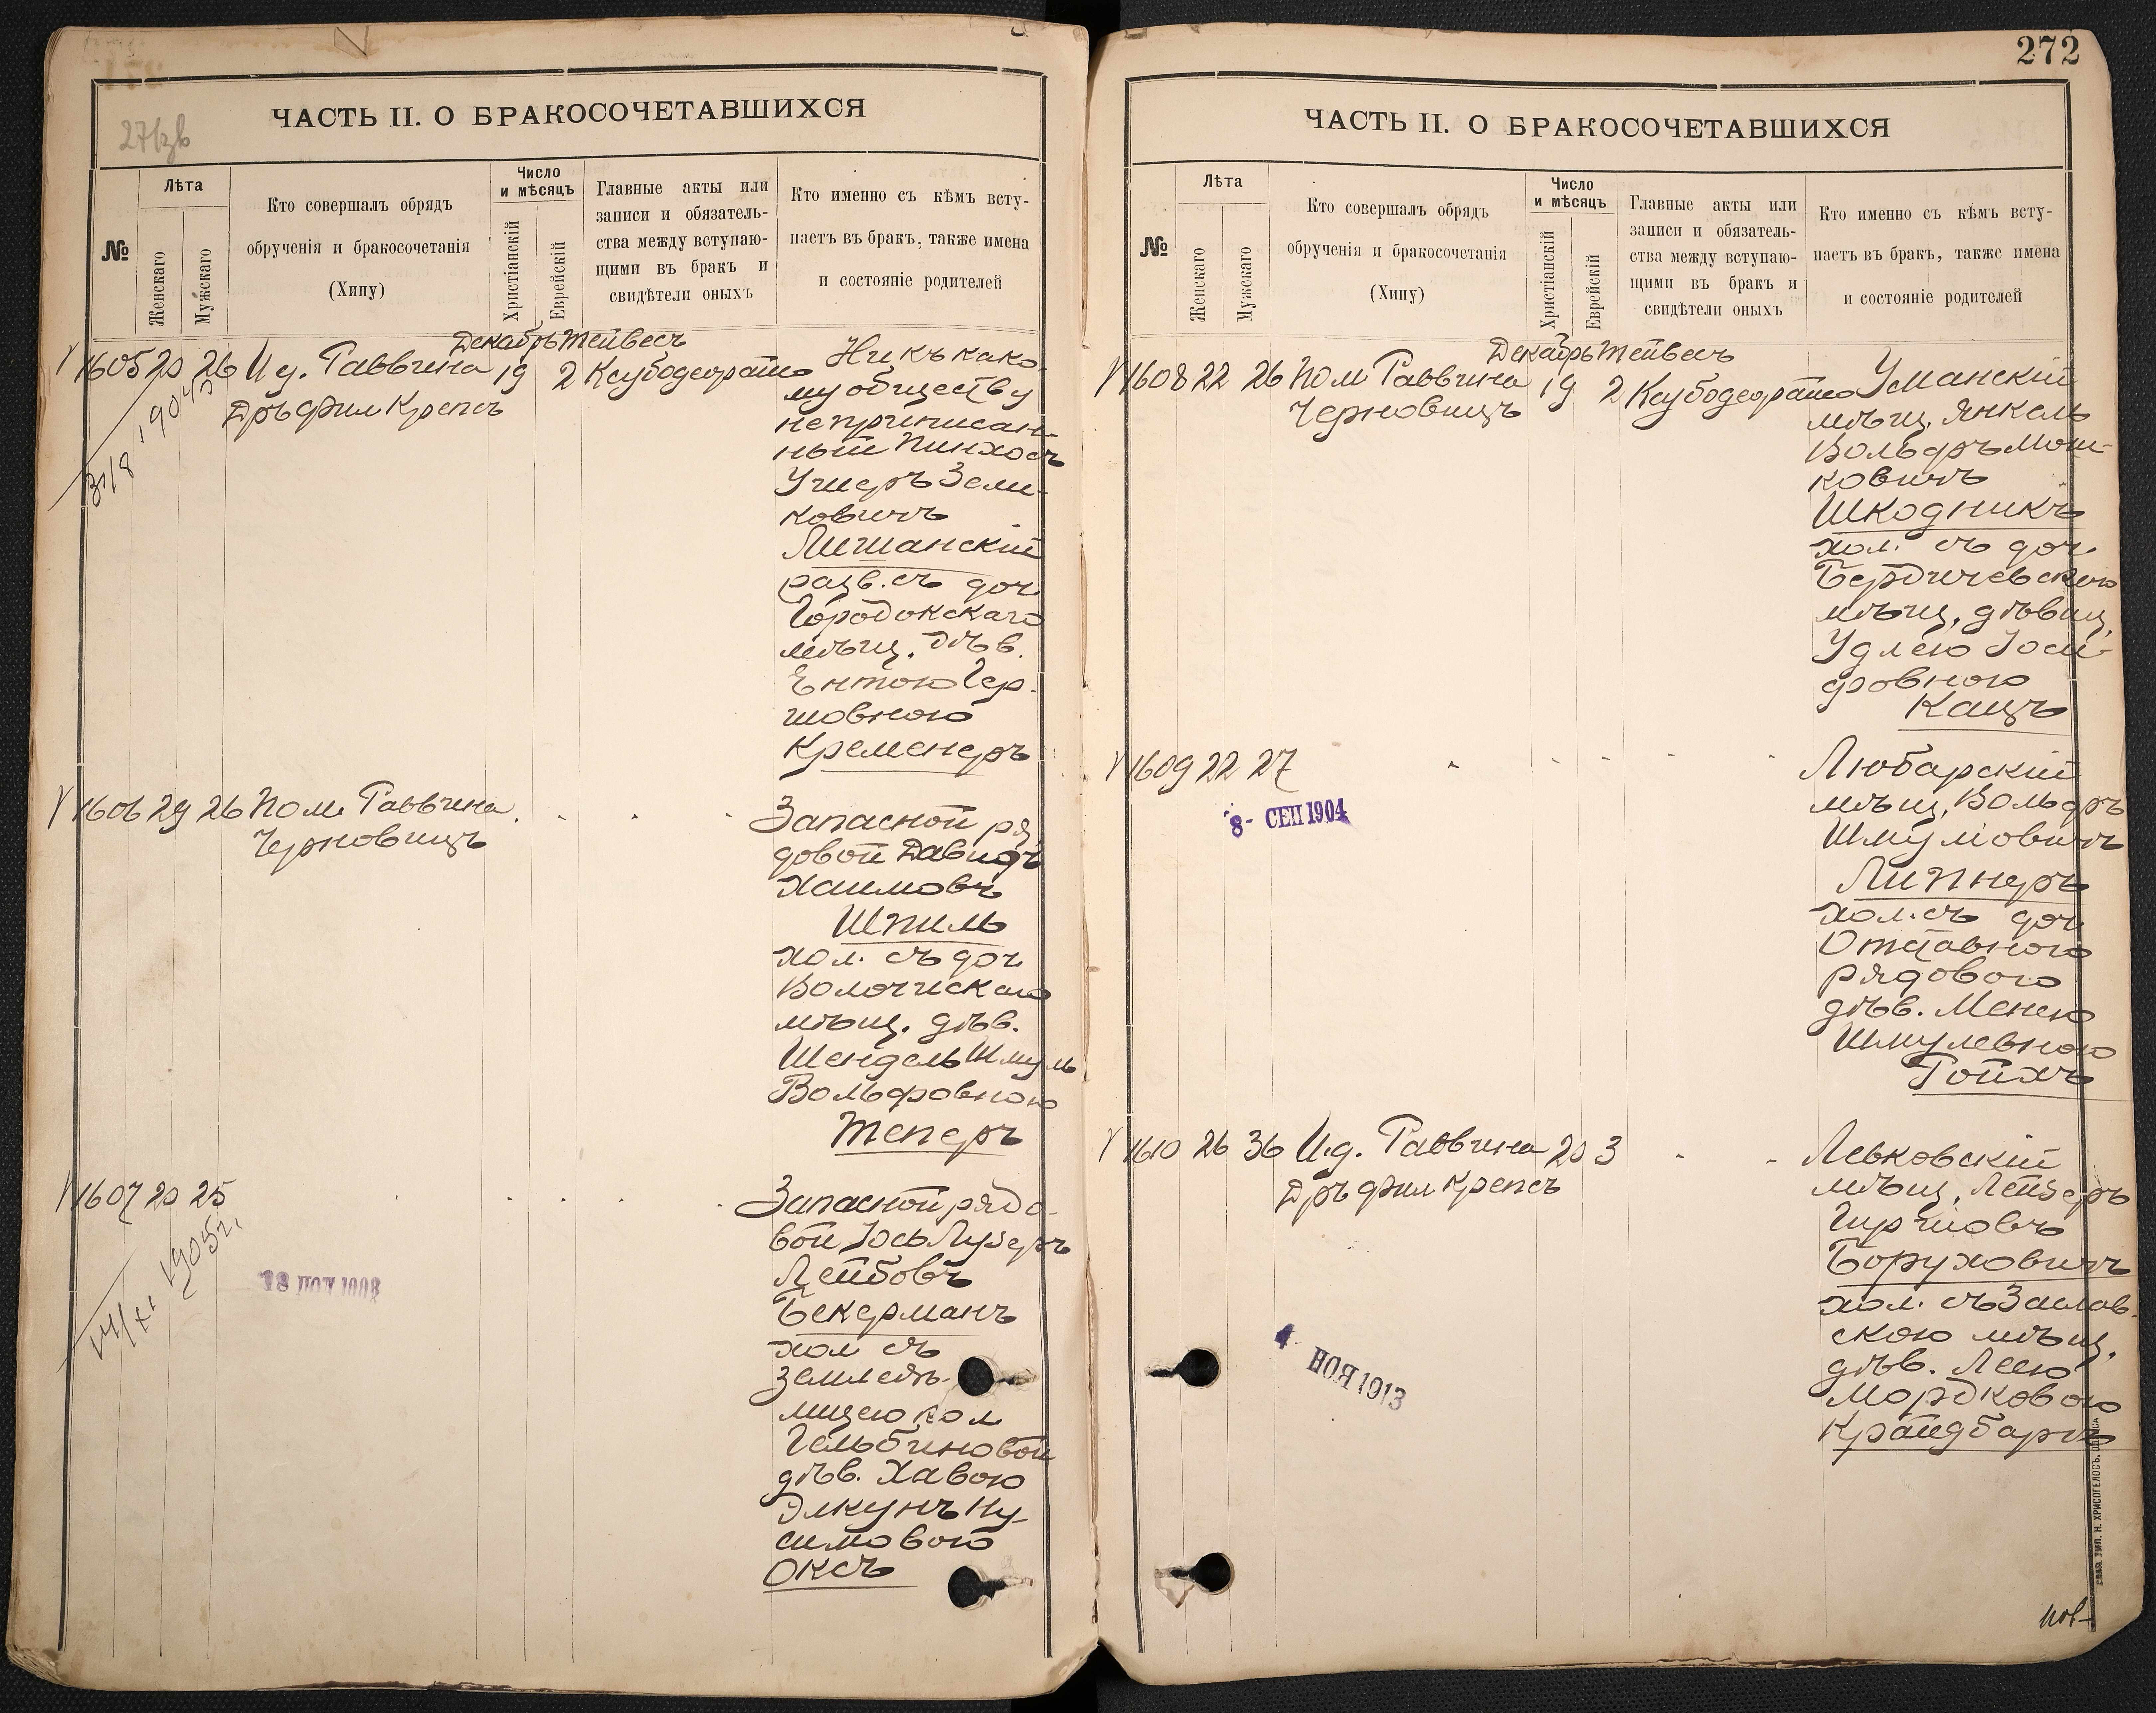 ЧАСТЬ II. О БРАКОСОЧЕТАВШИХСЯ
№
Лѣта
Женскаго
Мужскаго
Кто совершалъ обрядъ
обрученія и бракосочетанія
(Хипу)
Число
и мѣсяцъ
Христіанскій
Еврейскій
Главные акты или
записи и обязатель-
ства между вступаю-
щими въ бракъ и
свидѣтели оныхъ
Кто именно съ кѣмъ всту-
паетъ въ бракъ, также имена
и состояніе родителей
Декабрь Тейвесъ
1605 20 26 И д. Раввина 19 2
Дръ фил Крепсъ
Ни къ како-
му обществу
неприписан-
ный Пинхосъ
Ушеръ Зели-
ковичъ
Лишанскій
разв. съ доч.
Городокскаго
мѣщ. дѣв.
Ентою Гер-
шовною
Кременеръ
1606 29 26 Пом. Раввина
Черновицъ
Запасной ря
довой Давидъ
Хаимовъ
Шпиль
хол. съ доч
Волочискаго
мѣщ. дѣв.
Шендель Шмуль
Вольфовною
Теперъ
1607 20 25
1905г.
Запасной рядо-
вой Іось Лузеръ
Лейбовъ
Бекерманъ
хол съ
землед
лицею кол
дѣв. Хавою
Элкунъ Ну-
симовою
Оксъ
272
ЧАСТЬ II. О БРАКОСОЧЕТАВШИХСЯ
№
Лѣта
Женскаго
Мужскаго
Кто совершалъ обрядъ
обрученія и бракосочетанія
(Хипу)
Число
и мѣсяцъ
Христіанскій
Еврейскій
Главные акты или
записи и обязатель-
ства между вступаю-
щими въ бракъ и
свидѣтели оныхъ
Кто именно съ кѣмъ всту-
паетъ въ бракъ, также имена
и состояніе родителей
Декабрь Тейвесъ
1608 22 26 Пом Раввина 19 2
Черновицъ
Уманскій
мѣщ. Янкель
Вольфъ Мош-
ковичъ
Шкодникъ
хол. съ доч.
Бердичевскаго
мѣщ. дѣвиц.
Удлею Іоси-
фовною
Кацъ
1609 22 27
8- СЕН 1904
Любарскій
мѣщ. Вольфъ
Шмуловичъ
Липнеръ
хол. съ доч
Отставного
рядового
дѣв. Менею
Шмулевною
Ройхъ
1610 26 36 И.д. Раввина 20 3
Дръ фил Крепсъ
4 НОЯ 1913
Левковскій
мѣщ. Лейзеръ
Гиршовъ
Боруховичъ
хол. съ Заслав-
скою мѣщ.
дѣв. Леею
Мордковою
Крайдбаргъ